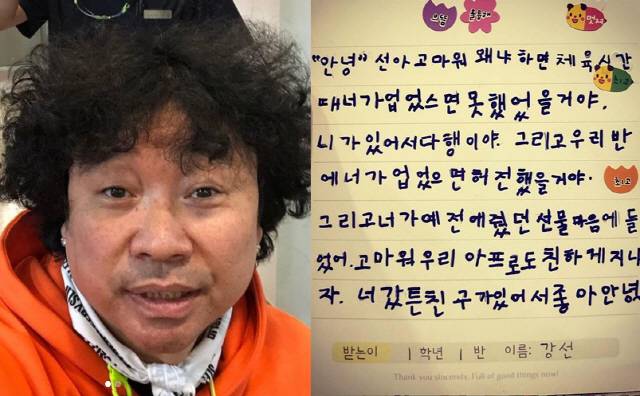 멋져
최고
"안녕" 선아 고마워 왜냐하면 체육시간
때너가업었스면못했었을거야.
니가있어서다행이야. 그리고우리반
에너가업었으면허전했을거야.
최고
그리고너가예전애줬던선물마음에들
었어. 고마워우리아프로도친하게지내
자. 너값튼친구가있어서좋아안녕
받는이 1학년 1반 이름: 강선
Thank you sincerely. Full of good things now!